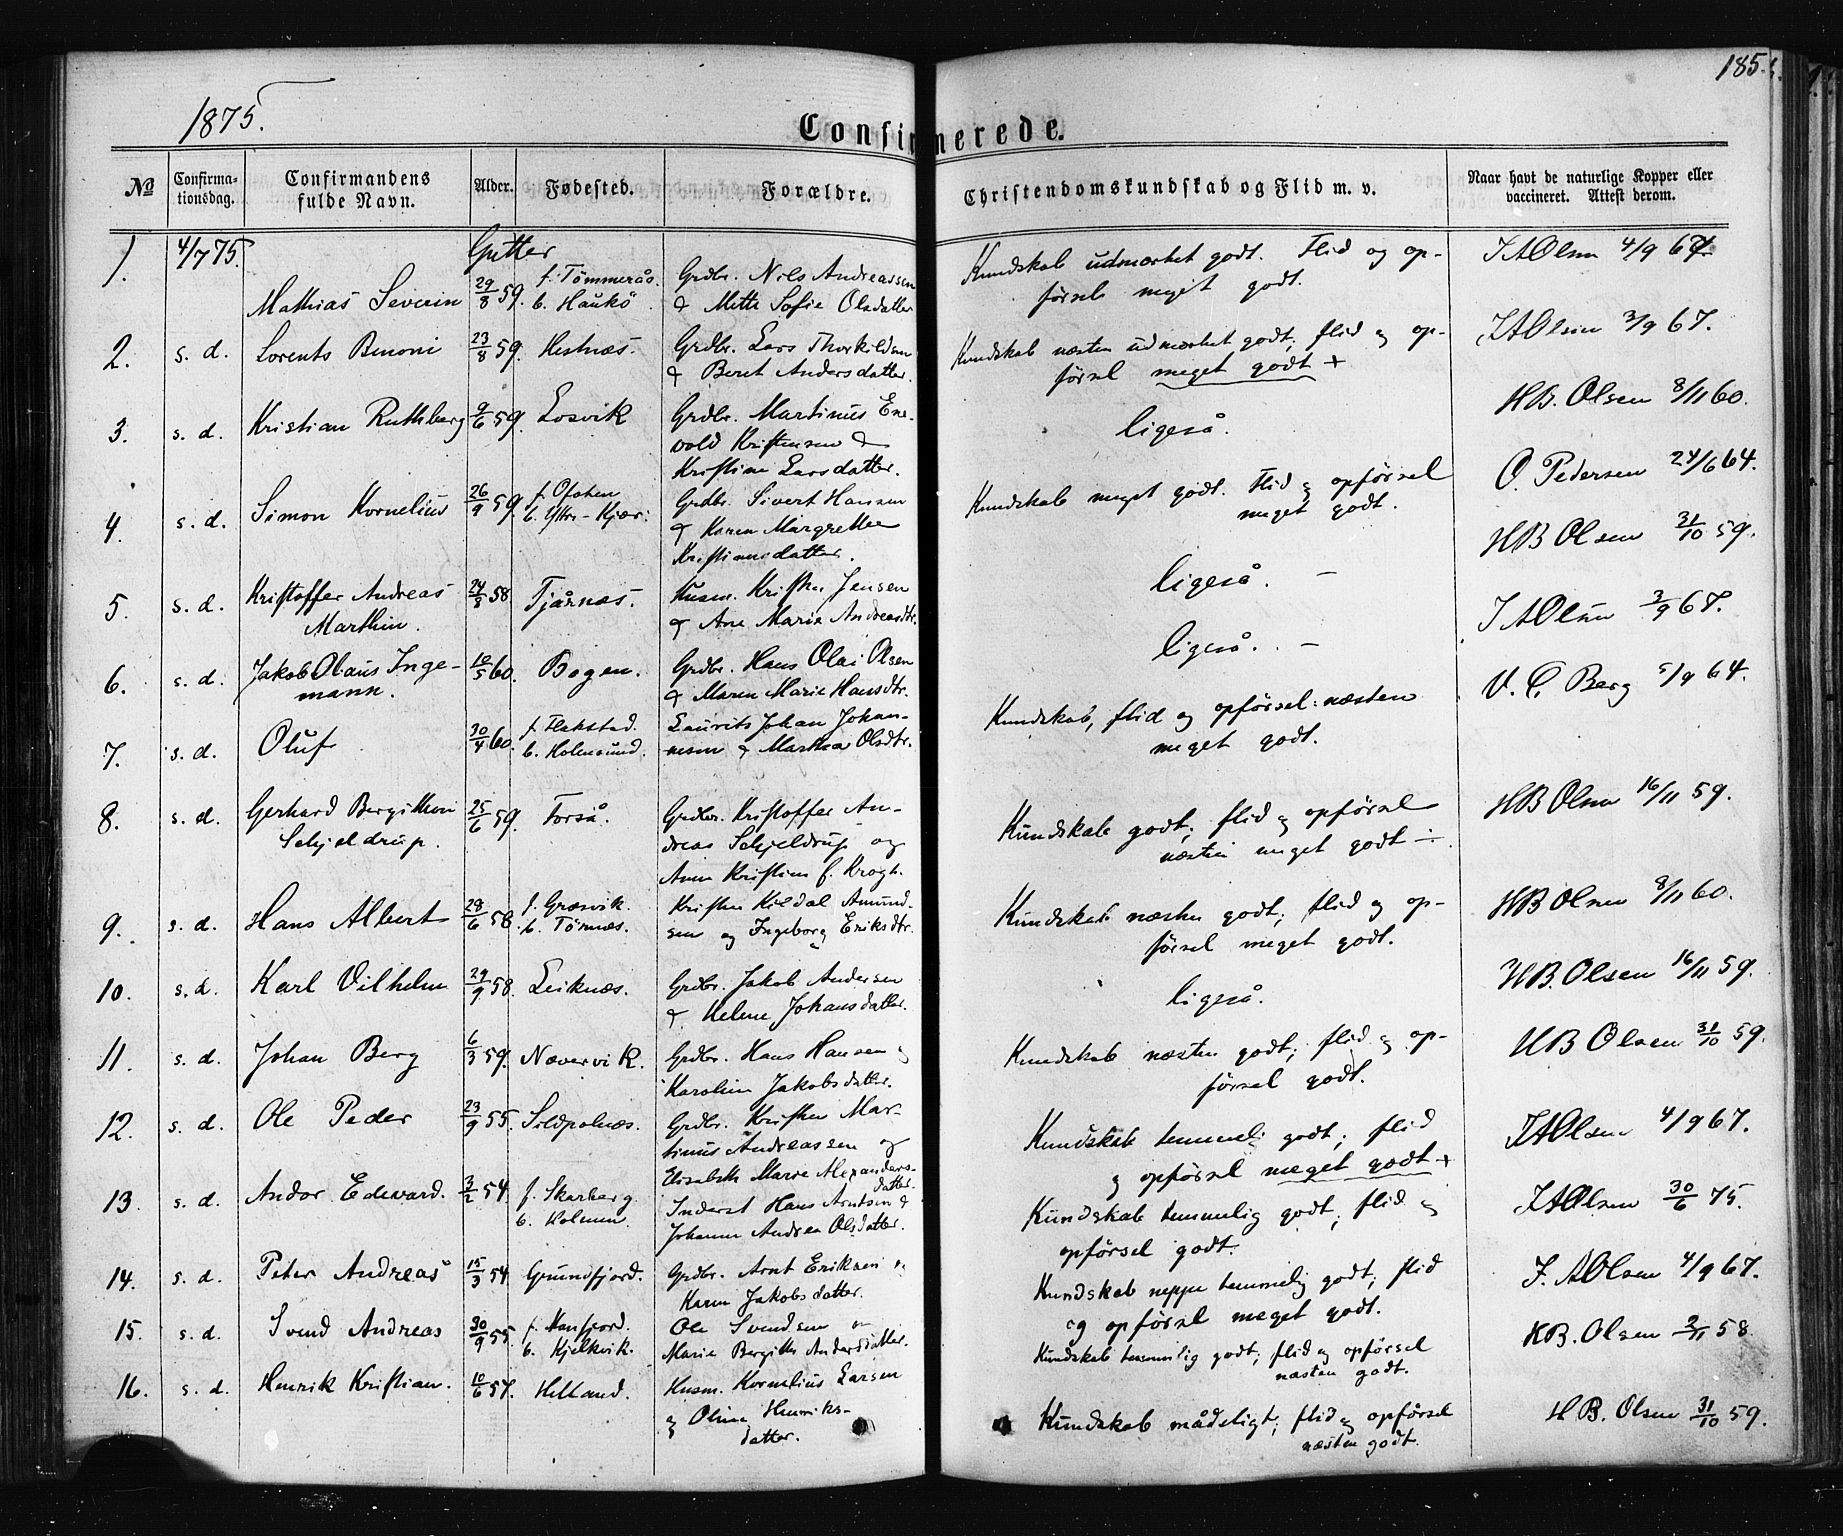 185.
1875.
Confirmerede.
No
Confirma-
tionsdag.
Confirmandens
fulde Navn.
Alder.
Fødested.
Forældre.
Christendomskundskab og Flid m. v.
Naar havt de naturlige Kopper eller
vaccineret. Attest derom.
Gutter
1. 4/7 75. Mathias Severin 29/8 59. f. Tömmerås. b. Haukö.
Grdbr. Nils Andreassen
& Mette Sofie Olsdatter
Kundskab udmærket godt. Flid og op-
försel meget godt.
I A Olsen 4/9 67.
2. s. d. Lorents Benoni 23/8 59. Hestnæs.
Grdbr. Lars Thorkildsen
& Beret Andersdatter.
Kundskab næsten udmærket godt; flid og op-
försel meget godt +
I A Olsen 3/9 67.
3. s. d. Kristian Ruthberg 9/6 59. Losvik
Grdbr. Martinus Ene-
vold Kristensen &
Kristine Larsdatter.
ligeså.
HB. Olsen 8/11 60.
4. s. d. Simon Kornelius 26/9 59. f. Ofoten b. Yttre-Kjær:
Grdbr. Sivert Hansen
& Karen Margrethe
Kristiansdatter.
Kundskab meget godt. Flid og opförsel
meget godt.
O. Pedersen 24/6 64.
5. s. d. Kristoffer Andreas
Marthin.
24/8 58 Tjårnæs.
Husm. Kristen Jensen
& Ane Marie Andreasdtr.
ligeså. –
HB Olsen 31/10 59.
6. s. d. Jakob Olaus Inge-
mann.
10/5 60. Bogen.
Grdbr. Hans Olai Olsen
& Maren Marie Hansdtr.
ligeså. –
I A Olsen 3/9 67.
7. s. d. Oluf 30/4 60. f. Flakstad. b. Holmsund.
Laurits Johan Johan-
nesen & Marthea Olsdtr.
Kundskab, flid og opförsel: næsten
meget godt.
V. C. Berg 5/9 64.
8. s. d. Gerhard Bergithon
Schjeldrup.
25/6 59. Forså.
Grdbr. Kristoffer An-
dreas Schjeldrup og
Anne Kristine f. Krogh.
Kundskab godt; flid og opförsel
næsten meget godt ÷.
HB Olsen 16/11 59.
9. s. d. Hans Albert 28/6 58. f. Græsvik. b. Törnæs.
Kristen Kildal Amund-
sen og Ingeborg Eriksdtr.
Kundskab næsten godt; flid og op-
försel meget godt.
HB Olsen 8/11 60.
10. s. d. Karl Vilhelm 29/9 58. Leiknæs.
Grdbr. Jakob Andersen
& Helene Johansdatter.
ligeså.
HB. Olsen 16/11 59.
11. s. d. Johan Berg 6/3 59. Nævervik.
Grdbr. Hans Hansen og
Karoline Jakobsdatter.
Kundskab næsten godt; flid og op-
försel godt.
HB Olsen 31/10 59.
12. s. d. Ole Peder 23/9 55. Sildpolnæs.
Grdbr. Kristen Mar-
tinus Andreassen og
Elisabeth Marie Alexanders-
datter.
Kundskab temmelig godt; flid
og opförsel meget godt +
I A Olsen 4/9 67.
13. s. d. Andor Edevard. 3/2 54. f. Skarberg. b. Holmen.
Inderst Hans Arntsen &
Johanne Andrea Olsdatter.
Kundskab temmelig godt; flid og
opförsel godt.
I A Olsen 30/6 75.
14. s. d. Peter Andreas 15/3 54. Grundfjord.
Grdbr. Arnt Eriksen og
Karen Jakobsdatter.
Kundskab neppe temmelig godt; flid
og opförsel meget godt.
I. A Olsen 4/9 67.
15. s. d. Svend Andreas 30/9 55. f. Hanfjord. b. Kjelkvik.
Ole Svendsen og
Marie Bergitte Andersdatter.
Kundskab temmelig godt; flid og opförsel
næsten godt.
HB. Olsen 2/11 58
16. s. d. Henrik Kristian. 10/6 57. Helland.
Husm. Kornelius Larsen
og Oline Henriks-
datter.
Kundskab mådeligt; flid og opförsel
næsten godt.
H B. Olsen 31/10 59.